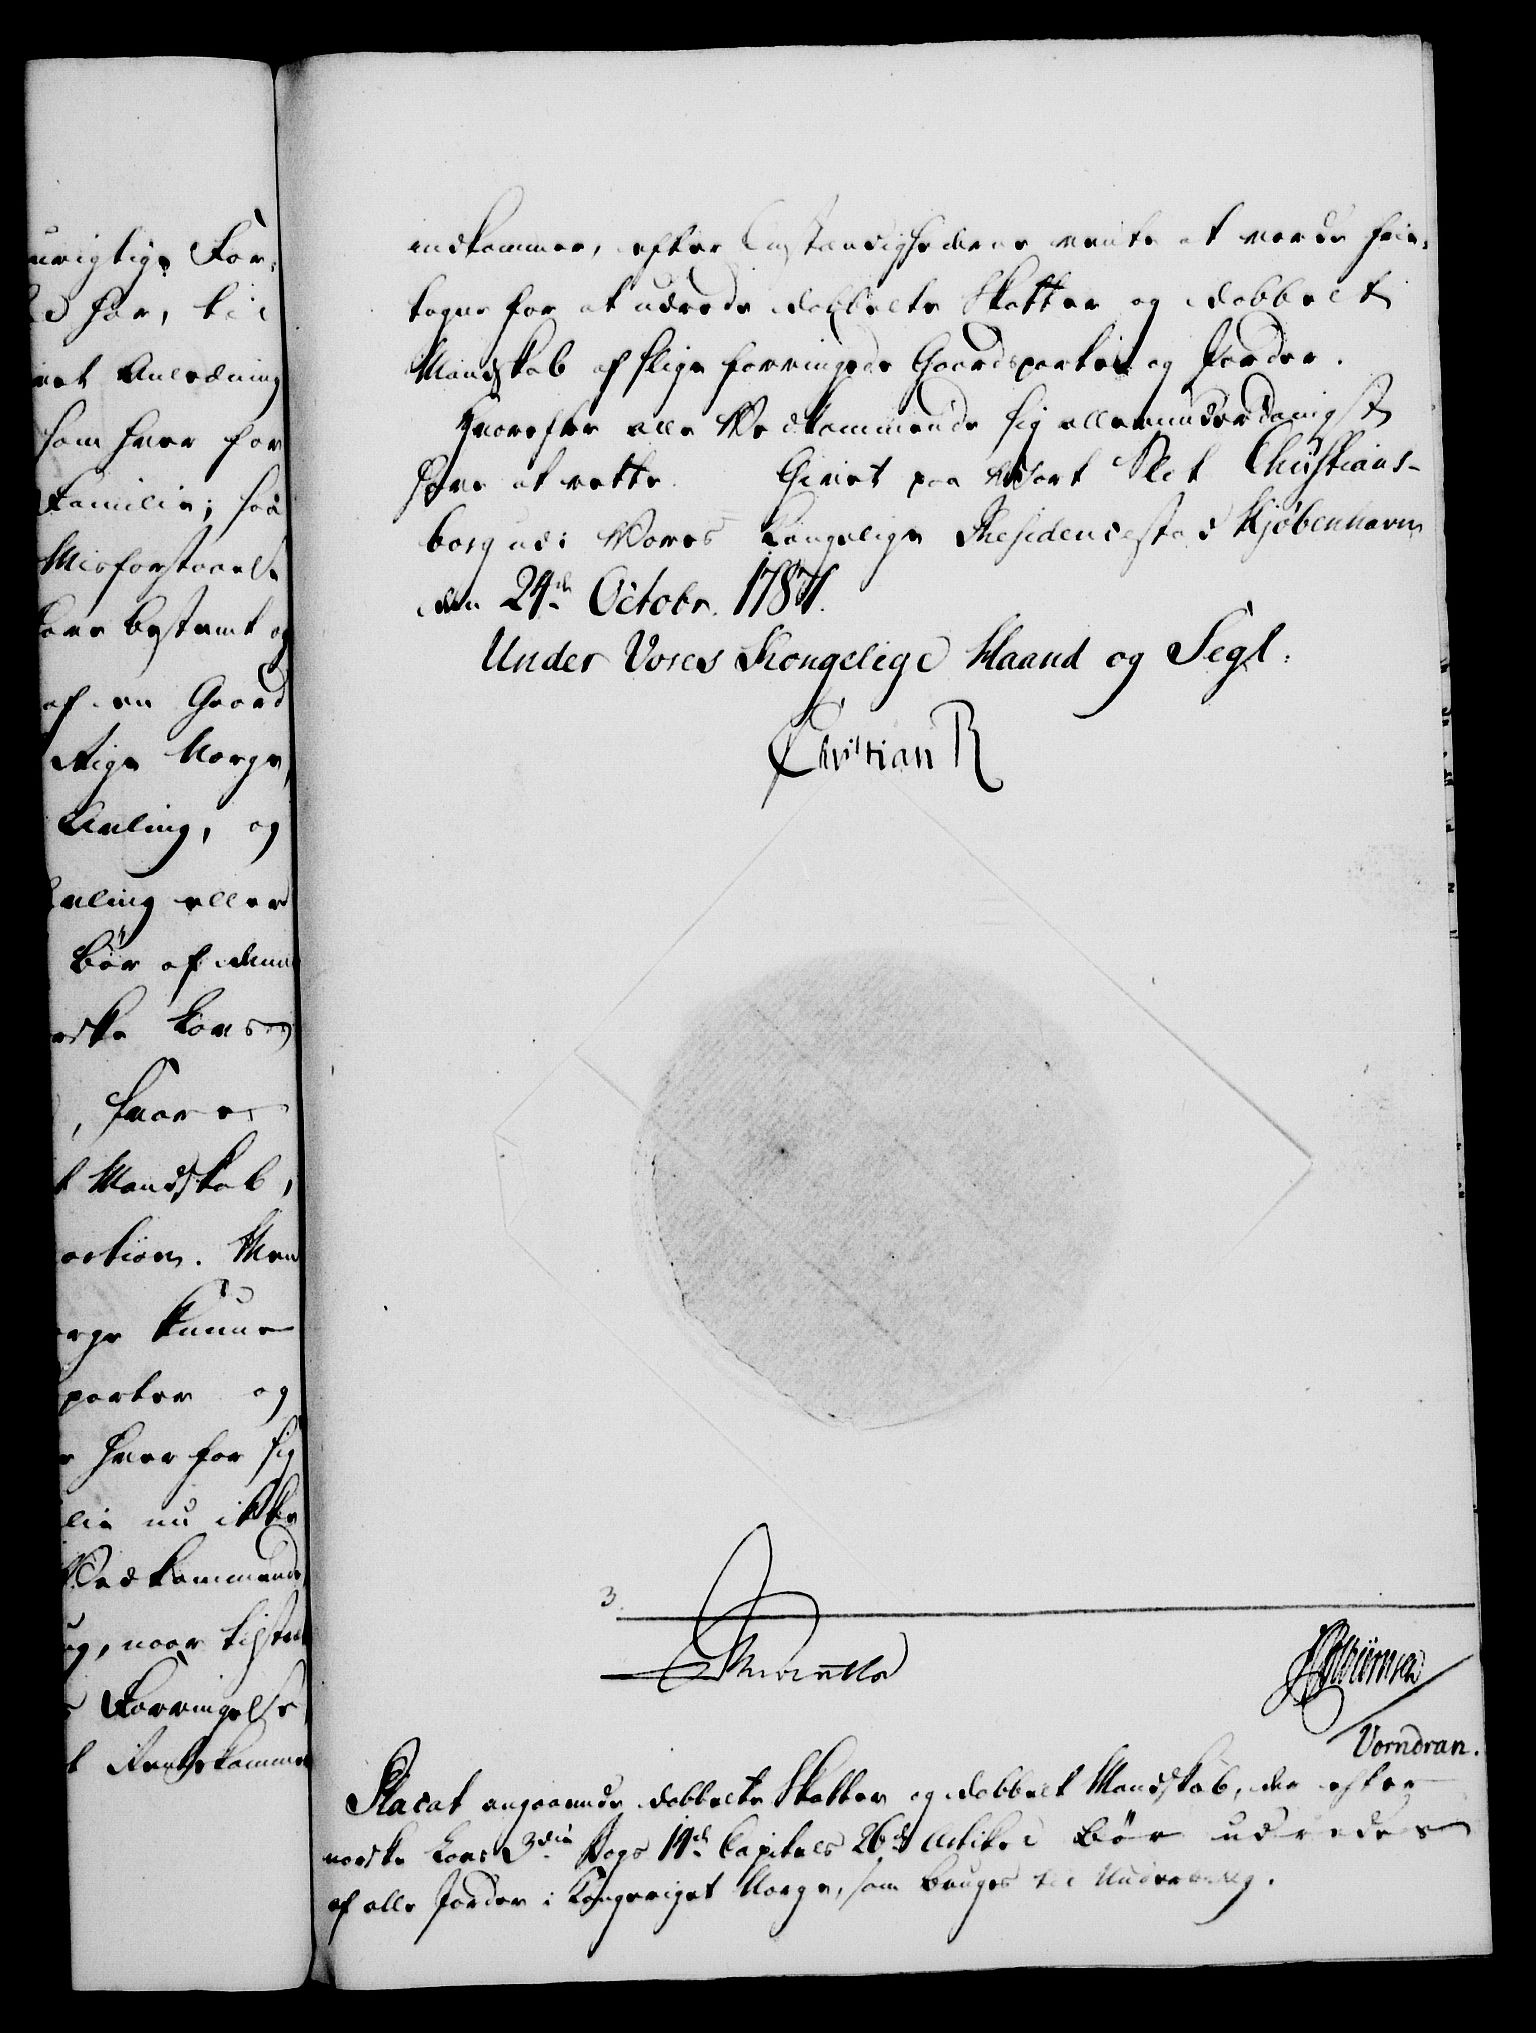 urigtige For-
 har, til
 Anledning
som hver for
Familie; saa
Misforstaaelse
 bestemt og
af en Gaard
 Norge,
Avling, og
Avling eller
bør af denne
norske Lovs
, hvor
 Mandskab,
 Men
Norge kunne
parter og
 hver for sig
 nu ikke
Vedkommende
, naar
 Forringelse
 Rentekammer
indkommer, efter Omstændighederne vente at vorde fri-
tagne for at udrede dobbelte Skatter og dobbelt
Mandskab af slige forringede Gaardsparter og Jorder.
Hvorefter alle Vedkommende sig allerunderdanigst
have at rette. Givet paa Vort Slot Christians-
borg udi Vores Kongelige Residencestad Kjøbenhavn
den 24de Octobr. 1787.
Under Vores Kongelige Haand og Segl.
Christian R
3.
Vorndran.
Placat angaaende dobbelte Skatter og dobbelt Mandskab, der efter
norske Lovs 3die Bogs 14de Capitels 26de Artikel bør udredes
af alle Jorder i Kongeriget Norge, som bruges til Underbrug.